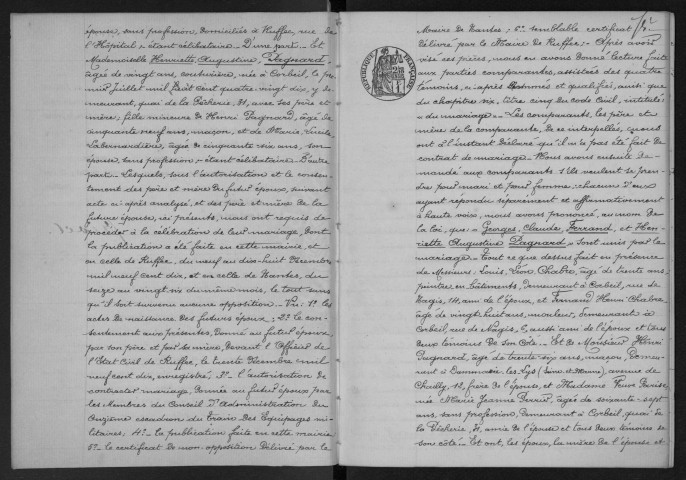 épouse, sans profession, domiciliés à Ruffec, rue de
l'Hôpital, étant célibataire – D'une part – Et
Mademoiselle Henriette Augustine Pagnard
âgée de vingt ans, couturière, née à Corbeil, le pre
mier Juillet mil huit cent quatre vingt dix, y de
meurant, quai de la Pêcherie, 31, avec ses père et
mère; fille mineure de Henri Pagnard, âgé de
cinquante neuf ans, maçon, et de Marie Lucile
Labernardière, âgée de cinquante six ans, son
épouse, sans profession, étant célibataire. D'autre
part – Lesquels, sous l'autorisation et le consen
tement des père et mère du futur époux, suivant
acte ci-après analysé, et des père et mère de la
future épouse, ici présents, nous ont requis de
procéder à la célébration de leur mariage, dont
la publication a été faite en cette mairie, et
en celle de Ruffec, du neuf au dix-huit Décembre
mil neuf cent dix, et en celle de Nantes, du
seize au vingt six du même mois, le tout sans
qu'il soit survenu aucune opposition – Vu: 1° les
actes de naissance des futurs époux; 2° le con-
sentement aux présentes, donné au futur époux,
par son père et par sa mère, devant l'Officier de
l'Etat Civil de Ruffec, le trente Décembre mil
neuf cent dix, enregistré; 3° l'autorisation de
contracter mariage, donnée au futur époux par
les Membres du Conseil d'Administration du
Onzième escadron du Train des Equipages mi-
litaires; 4° la publication faite en cette mairie
5° le certificat de non opposition délivré par le
Maire de Nantes; 6° semblable certificat
délivré par le Maire de Ruffec; Après avoir
visé ces pièces, nous en avons donné lecture faite
aux parties comparantes, assistées des quatre
témoins, ci-après nommés et qualifiés, ainsi que
du chapitre six, titre cinq du Code Civil, intitulé
« du mariage » – Les comparants, les père et
mère de la comparante, de ce interpellés, nous
ont à l'instant déclaré qu'il n'a pas été fait de
contrat de mariage. Nous avons ensuite de-
mandé aux comparants s'ils veulent se pren
dre pour mari et pour femme: chacun d'eux
ayant répondu séparément et affirmativement
à haute voix, nous avons prononcé, au nom de
la loi, que « Georges Claude Ferrand, et Hen
riette Augustine Pagnard » sont unis par le
mariage – tout ce que dessus fait en présence
de Messieurs: Louis Léon Chabre, âgé de trente ans,
peintre en bâtiments, demeurant à Corbeil, rue de
Nagis, 14, ami de l'époux, et Fernand Henri Chabre,
âgé de vingt huit ans, mouleur, demeurant à
Corbeil, rue de Nagis, 6, aussi ami de l'époux et tous
deux témoins de son côté – Et de Monsieur Henri
Pagnard, âgé de trente six ans, maçon, demeu-
rant à Dammarie les Lys (Seine-et-Marne), avenue de
Chailly, 12, frère de l'épouse, et Madame Veuve
née Marie Jeanne Perrin, âgée de soixante-sept
ans, sans profession, demeurant à Corbeil, quai de
la Pêcherie, 31, amie de l'épouse et tous deux témoins de
son côté – Et ont, les époux, la mère de l'épouse et